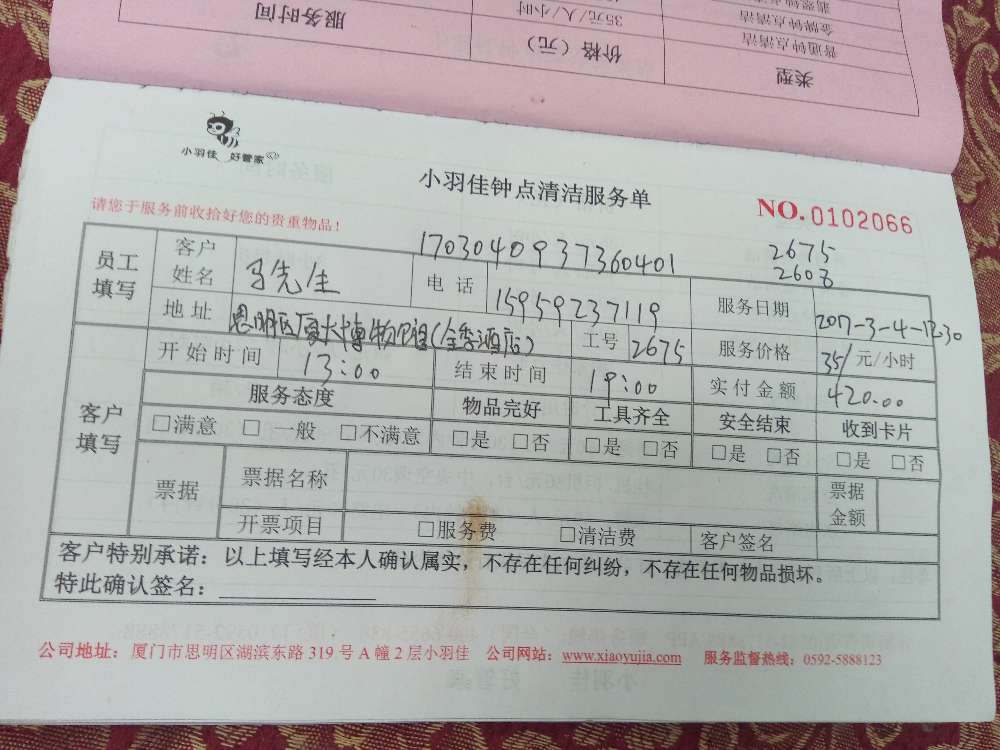 服务时间
35元/人/小时
金牌钟点清洁
普通钟点清洁
价格（元）
类型
小羽佳 好管家
小羽佳钟点清洁服务单
NO.0102066
请您于服务前收拾好您的贵重物品！
1703040937360401
2675
2608
员工填写
客户姓名
马先生
电 话
15959237119
服务日期
2017-3-4-12:30
地 址
思明区厦大博物馆(全季酒店)
工号
2675
服务价格
35/元/小时
开始时间
13:00
结束时间
19:00
实付金额
420.00
客户填写
服务态度
物品完好
工具齐全
安全结束
收到卡片
□满意 □ 一般 □不满意
□是 □否
□是 □否
□是 □否
□是 □否
票据
票据名称
票据金额
开票项目
□服务费 □清洁费
客户签名
客户特别承诺：以上填写经本人确认属实，不存在任何纠纷，不存在任何物品损坏。
特此确认签名：
公司地址：厦门市思明区湖滨东路 319 号 A 幢 2 层小羽佳 公司网站：www.xiaoyujia.com 服务监督热线：0592-5888123